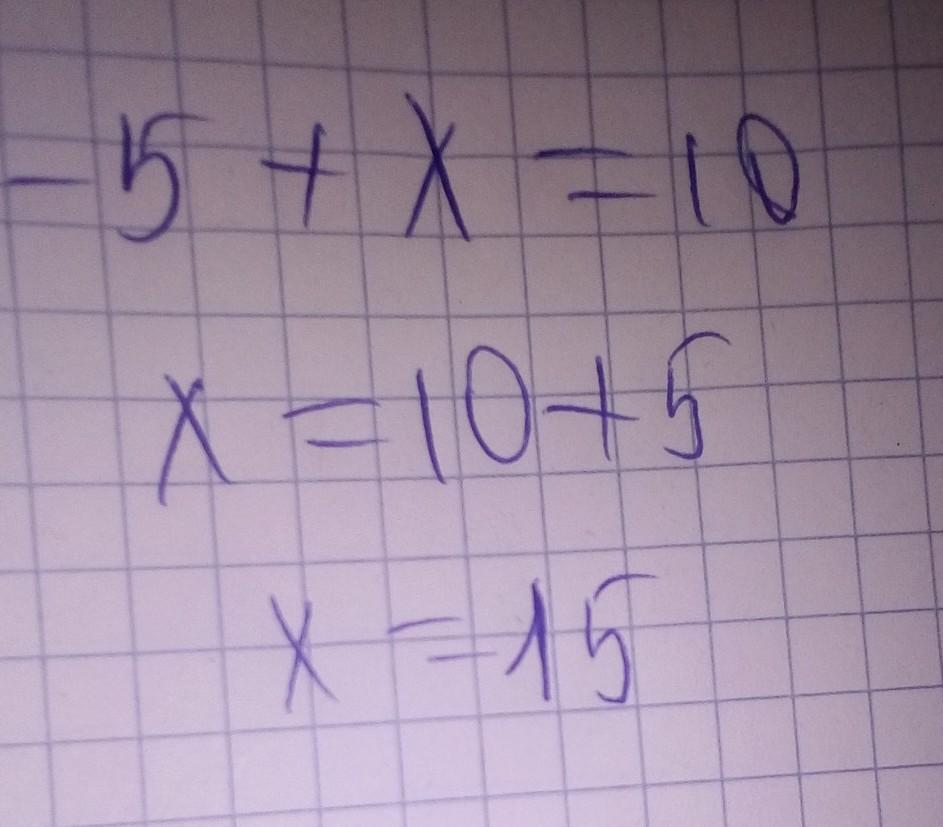 -5 + x = 10
x = 10 + 5
x = 15